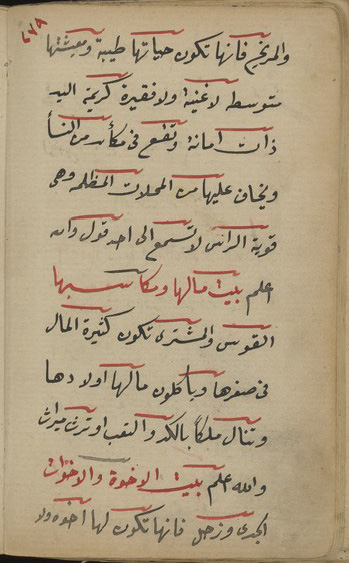 والمريخ فانها تكون حياتها طيبة ومعيشتها
متوسطه لا غنية ولا فقيرة كريمة اليد
ذات امانة وتقع في مكايد من النسأ
ويخاف عليها من المحلات المظلمه وهى
قوية الراس لا تسمع الى احد قول والله
اعلم بيت مالها ومكاسبها
القوس والمشترى تكون كثيرة المال
فى صغرها وياكلون مالها اولادها
وتنال ملكا بالكد والتعب او ترث ميراث
والله اعلم بيت الاخوة والاخوات
الجدى وزحل فانها تكون لها اخوه ولا